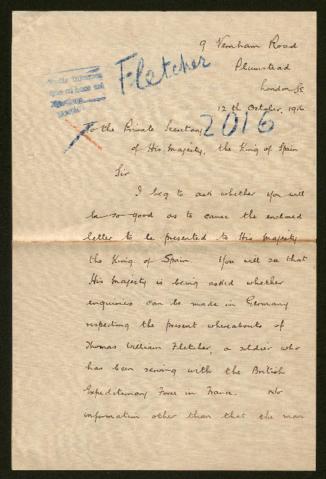 9 Vernham Road
Plumstead
London SE
12th October, 1916
Fletcher
2016
To the Private Secretary
of His Majesty, the King of Spain
Sir
I beg to ask whether you will
be so good as to cause the enclosed
letter to be presented to His Majesty
the King of Spain. You will see that
His Majesty is being asked whether
enquiries can be made in Germany
respecting the present whereabouts of
Thomas William Fletcher, a soldier who
has been serving with the British
Expeditionary Force in France. No
information other than that the man